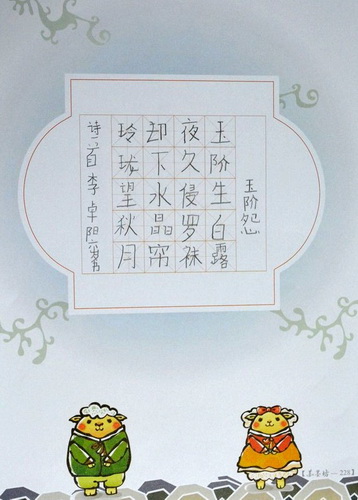 玉阶怨
玉阶生白露
夜久侵罗袜
却下水晶帘
玲珑望秋月
诗一首 李卓阳六岁书
【墨墨檀—228】